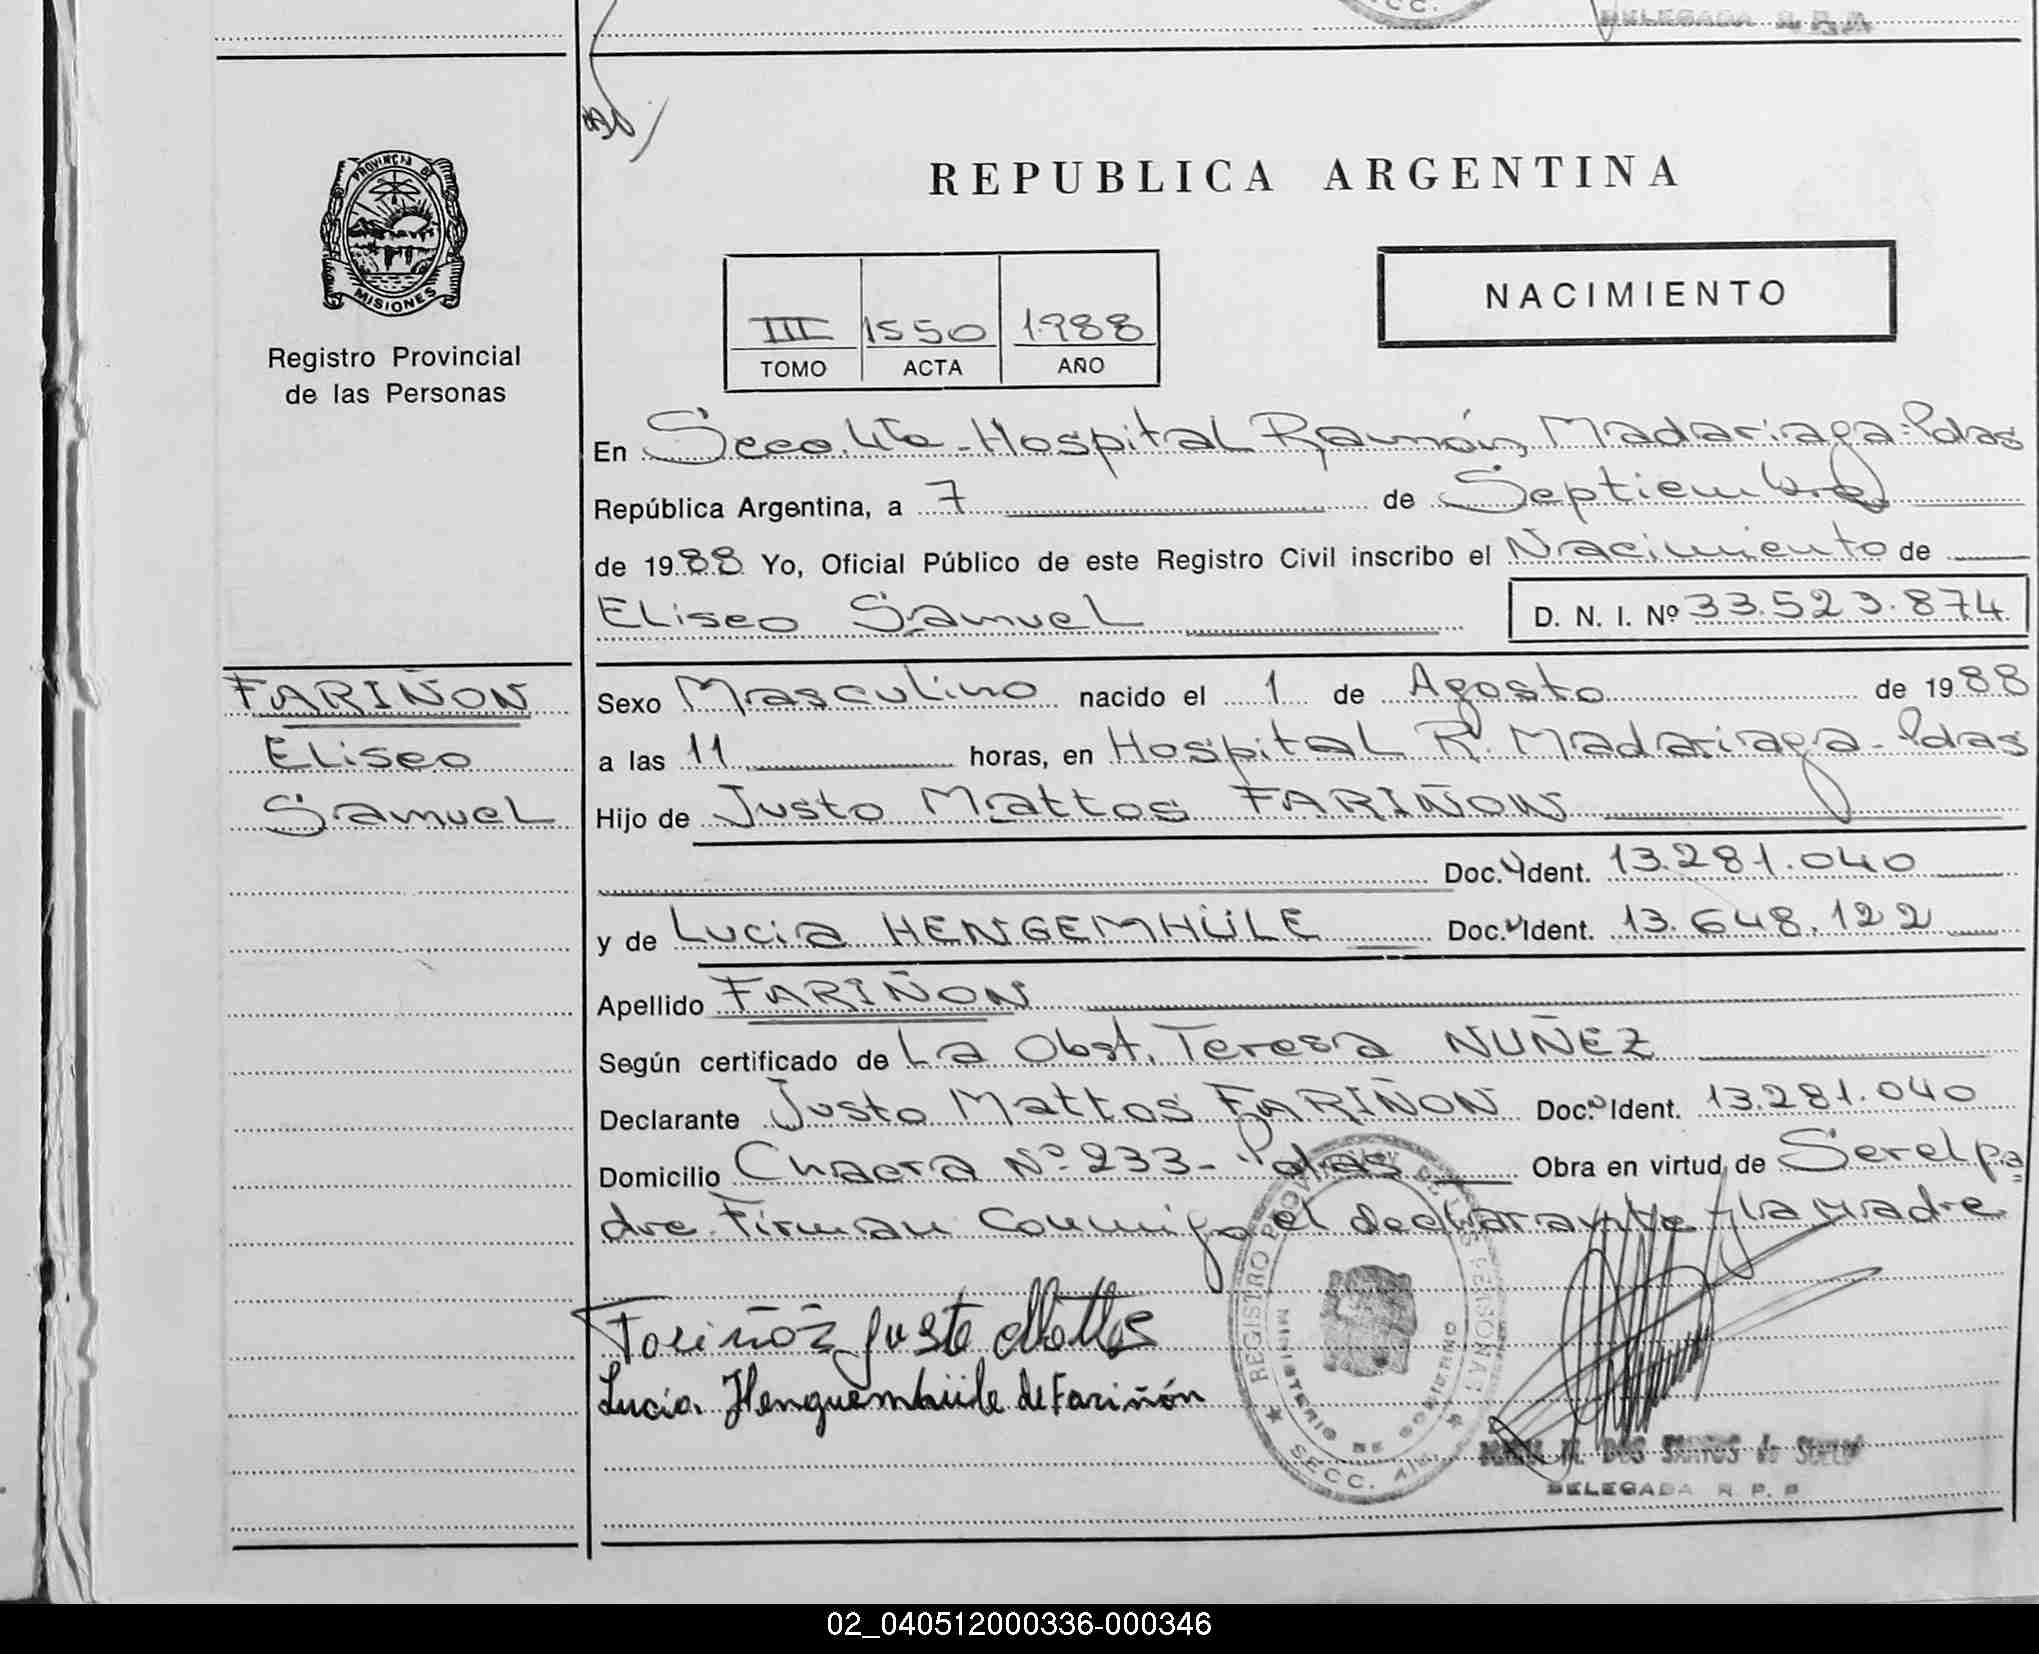 DELEGADA R. P. P.
PROVINCIA DE
MISIONES
Registro Provincial
de las Personas
REPUBLICA ARGENTINA
NACIMIENTO
III 1550 1988
TOMO ACTA AÑO
En Secc. 4ta - Hospital Ramón Madariaga - Pdas
República Argentina, a 7 de Septiembre
de 1988 Yo, Oficial Público de este Registro Civil inscribo el Nacimiento de
Eliseo Samuel D. N. I. Nº 33.523.874
FARIÑON
Eliseo
Samuel
Sexo Masculino nacido el 1 de Agosto de 1988
a las 11 horas, en Hospital R. Madariaga - Pdas
Hijo de Justo Mattos FARIÑON
Doc. Ident. 13.281.040
y de Lucia HENGEMHÜLE Doc. Ident. 13.648.122
Apellido FARIÑON
Según certificado de La Obst. Teresa NUÑEZ
Declarante Justo Mattos FARIÑON Doc. Ident. 13.281.040
Domicilio Chacra Nº 233 - Pdas Obra en virtud de Ser el pa
dre. Firman Conmigo el declarante y la madre
Fariñón Justo Mattos
Lucia Henguemhüle de Fariñón
REGISTRO PROVINCIAL DE LAS PERSONAS
MINISTERIO DE GOBIERNO
SECC.
M. DOS SANTOS de
DELEGADA R. P. P.
02_040512000336-000346